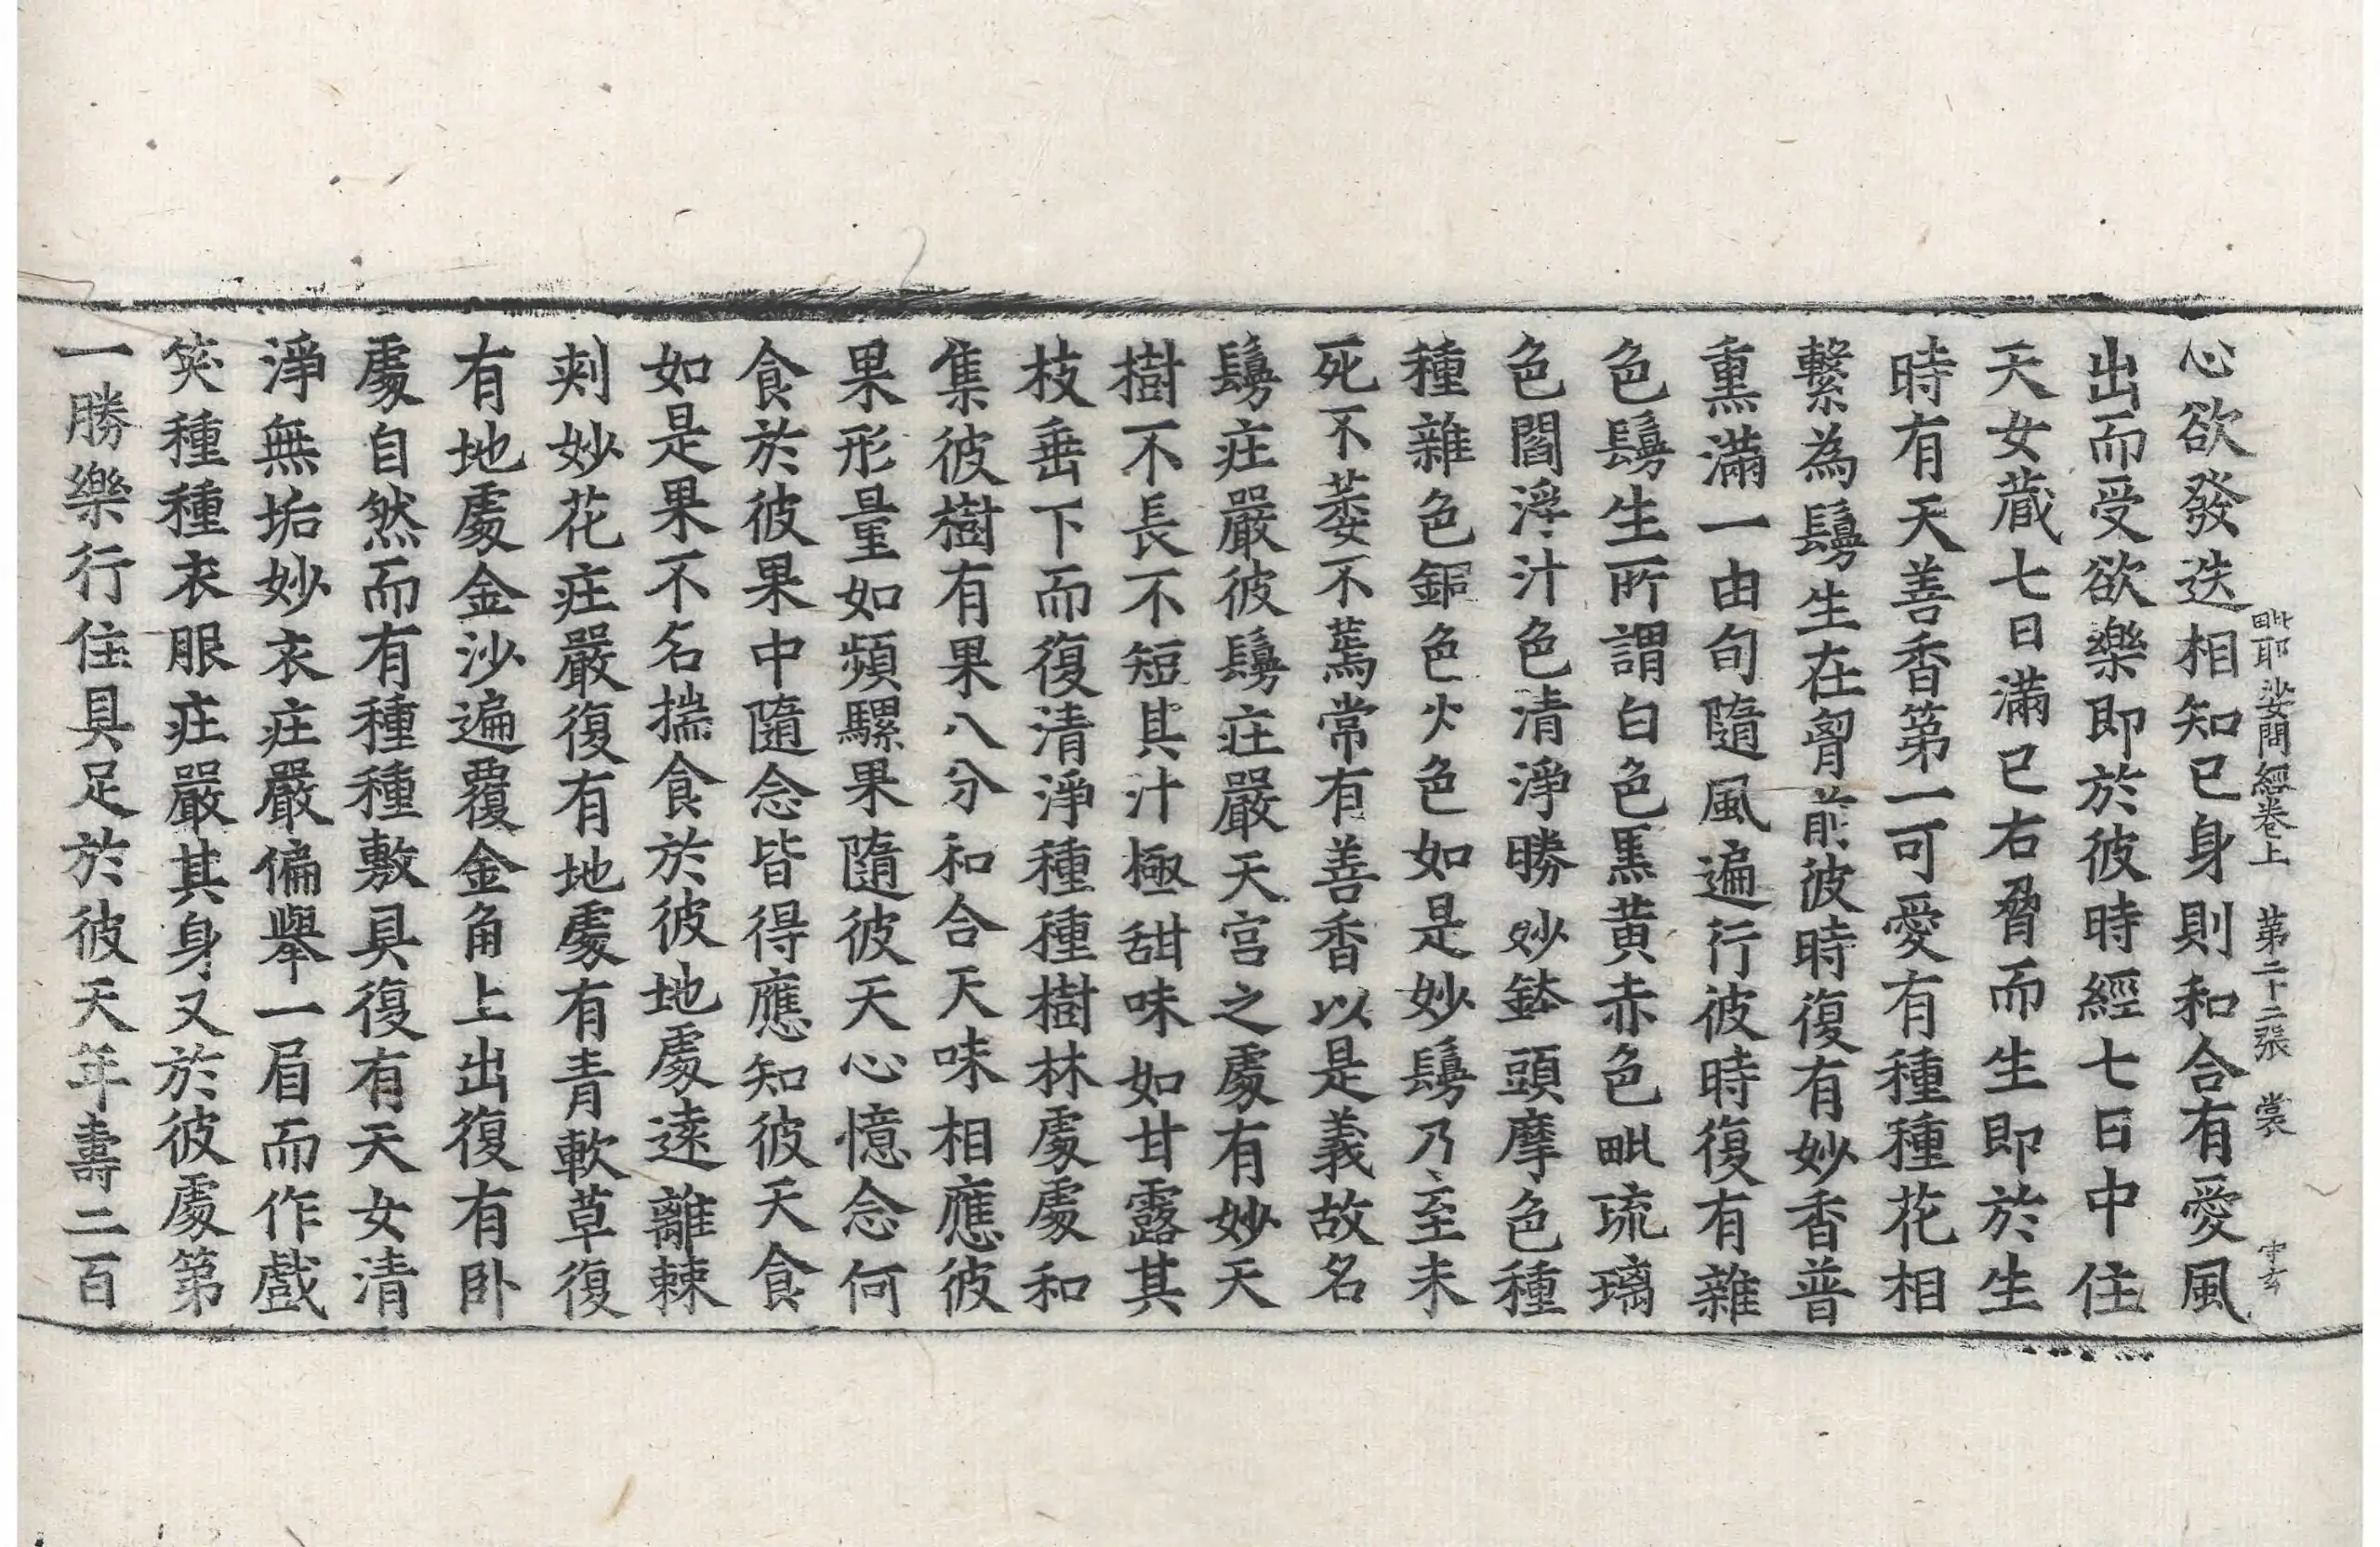 毗耶娑問經卷上 第二十二張 裳
心欲發迭相知已身則和合有愛風
出而受欲樂即於彼時經七日中住
天女藏七日滿已右脅而生即於生
時有天善香第一可愛有種種花相
繫為鬘生在胷前彼時復有妙香普
熏滿一由旬隨風遍行彼時復有雜
色鬘生所謂白色黑黄赤色毗琉璃
色閻浮汁色清淨勝妙鉢頭摩色種
種雜色鈻色火色如是妙鬘乃至未
死不萎不蔫常有善香以是義故名
鬘庄嚴彼鬘庄嚴天宫之處有妙天
樹不長不短其汁極甜味如甘露其
枝垂下而復清淨種種樹林處處和
集彼樹有果八分和合天味相應彼
果形量如頻騾果隨彼天心憶念何
食於彼果中隨念皆得應知彼天食
如是果不名揣食於彼地處遠離棘
刾妙花庄嚴復有地處有青軟草復
有地處金沙遍覆金角上出復有卧
處自然而有種種敷具復有天女清
淨無垢妙衣庄嚴偏舉一眉而作戲
笑種種衣服庄嚴其身又於彼處第
一勝樂行住具足於彼天年壽二百